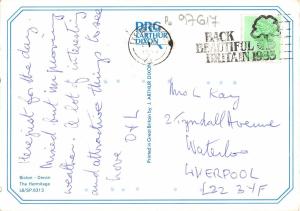 Here just for the day.
Mixed but not pouring
weather. A lot of interesting
and attractive things to see
Love D+L
Bicton - Devon
The Hermitage
Printed in Great Britain by J. ARTHUR DIXON
DRG
J. ARTHUR
DIXON
BACK
BEAUTIFUL
BRITAIN 1983
Mrs L Kay
2 Tyndall Avenue
Waterloo
LIVERPOOL
L22 3YF